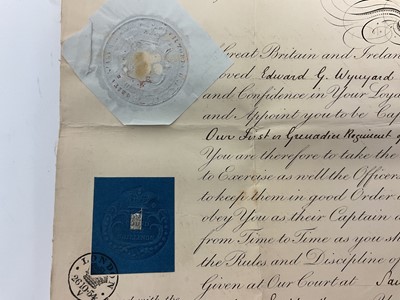 Great Britain and Ireland
loved Edward G. Wynyard
and Confidence in Your Loya
and Appoint you to be Cap
Our First or Grenadier Regiment of
You are therefore to take the
to Exercise as well the Officers
to keep them in good Order a
obey You as their Captain a
from Time to Time as you sh
the Rules and Discipline of
Given at Our Court at
with the
LONDON